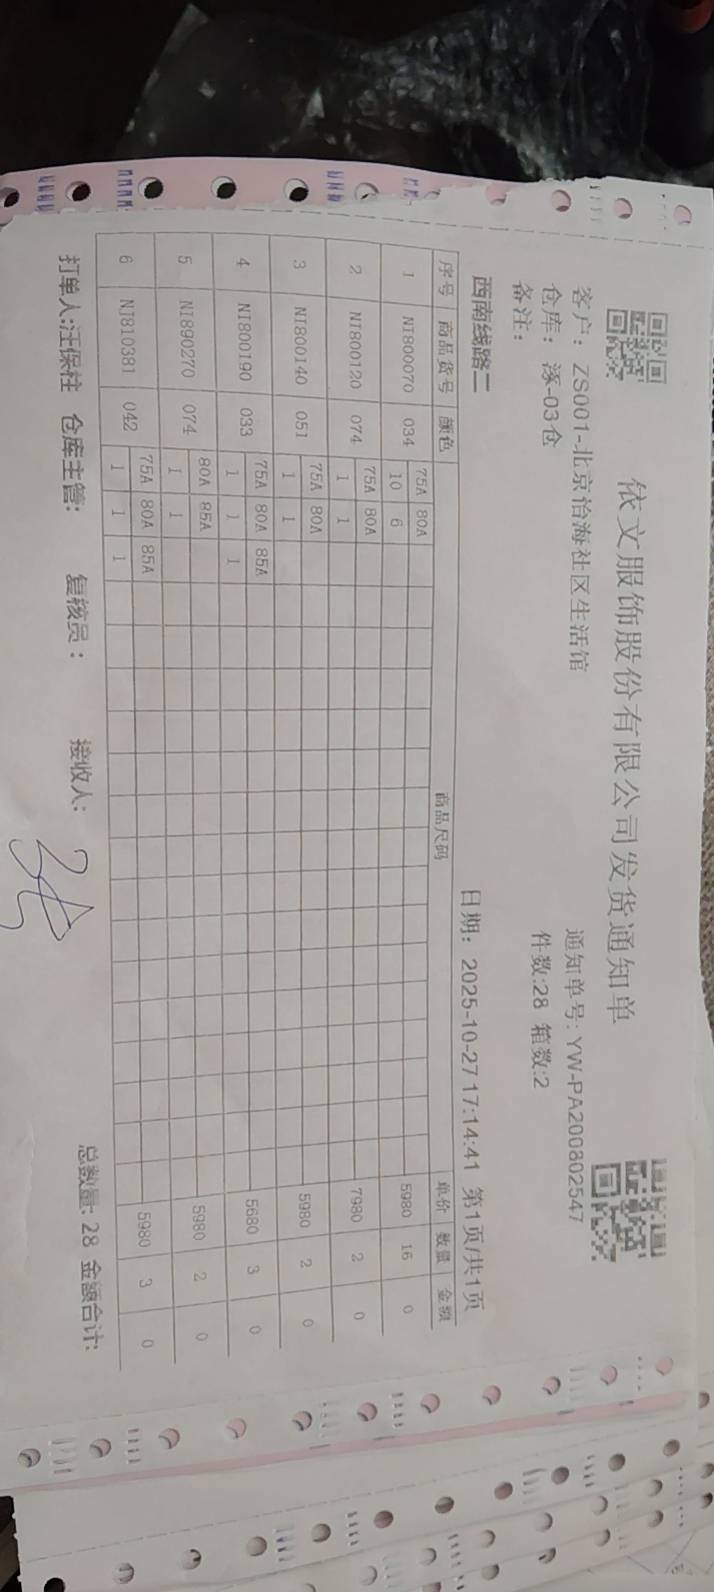 依文服饰股份有限公司发货通知单
客户：ZS001-北京怡海社区生活馆 通知单号:YW-PA200802547
仓库：涿-03仓 件数:28 箱数:2
备注：
西南线路二 日期：2025-10-27 17:14:41 第1页/共1页
序号 商品货号 颜色 商品尺码 单价 数量 金额
75A 80A
1 NI800070 034 10 6 5980 16 0
75A 80A
2 NI800120 074 1 1 7980 2 0
75A 80A
3 NI800140 051 1 1 5980 2 0
75A 80A 85A
4 NI800190 033 1 1 1 5680 3 0
80A 85A
5 NI890270 074 1 1 5980 2 0
75A 80A 85A
6 NI810381 042 1 1 1 5980 3 0
打单人:汪保柱 仓库主管: 复核员： 接收人: 总数量: 28 金额合计: